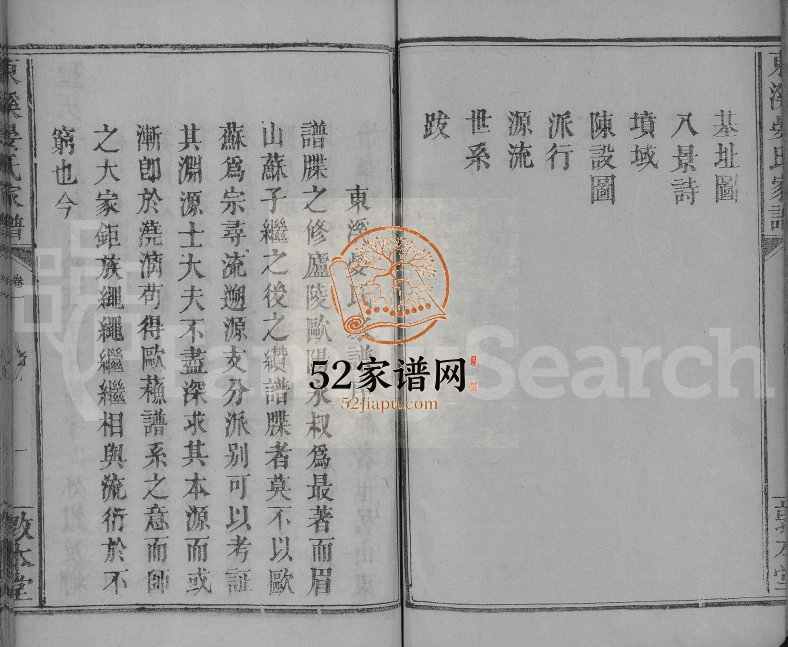 基址圖
八景詩
墳域
陳設圖
派行
源流
世系
跋
東溪晏氏家譜
譜牒之修廬陵歐陽永叔爲最著而眉
山蘇子繼之後之纘譜牒者莫不以歐
蘇爲宗尋流遡源支分派别可以考証
其淵源士大夫不盡深求其本源而或
漸卽於澆漓苟得歐蘓譜系之意而師
之大家鉅族繩繩繼繼相與流衍於不
窮也今
東溪晏氏家譜
卷一
一
敦本堂
52家谱网
52jiapu.com
JiapuSearch